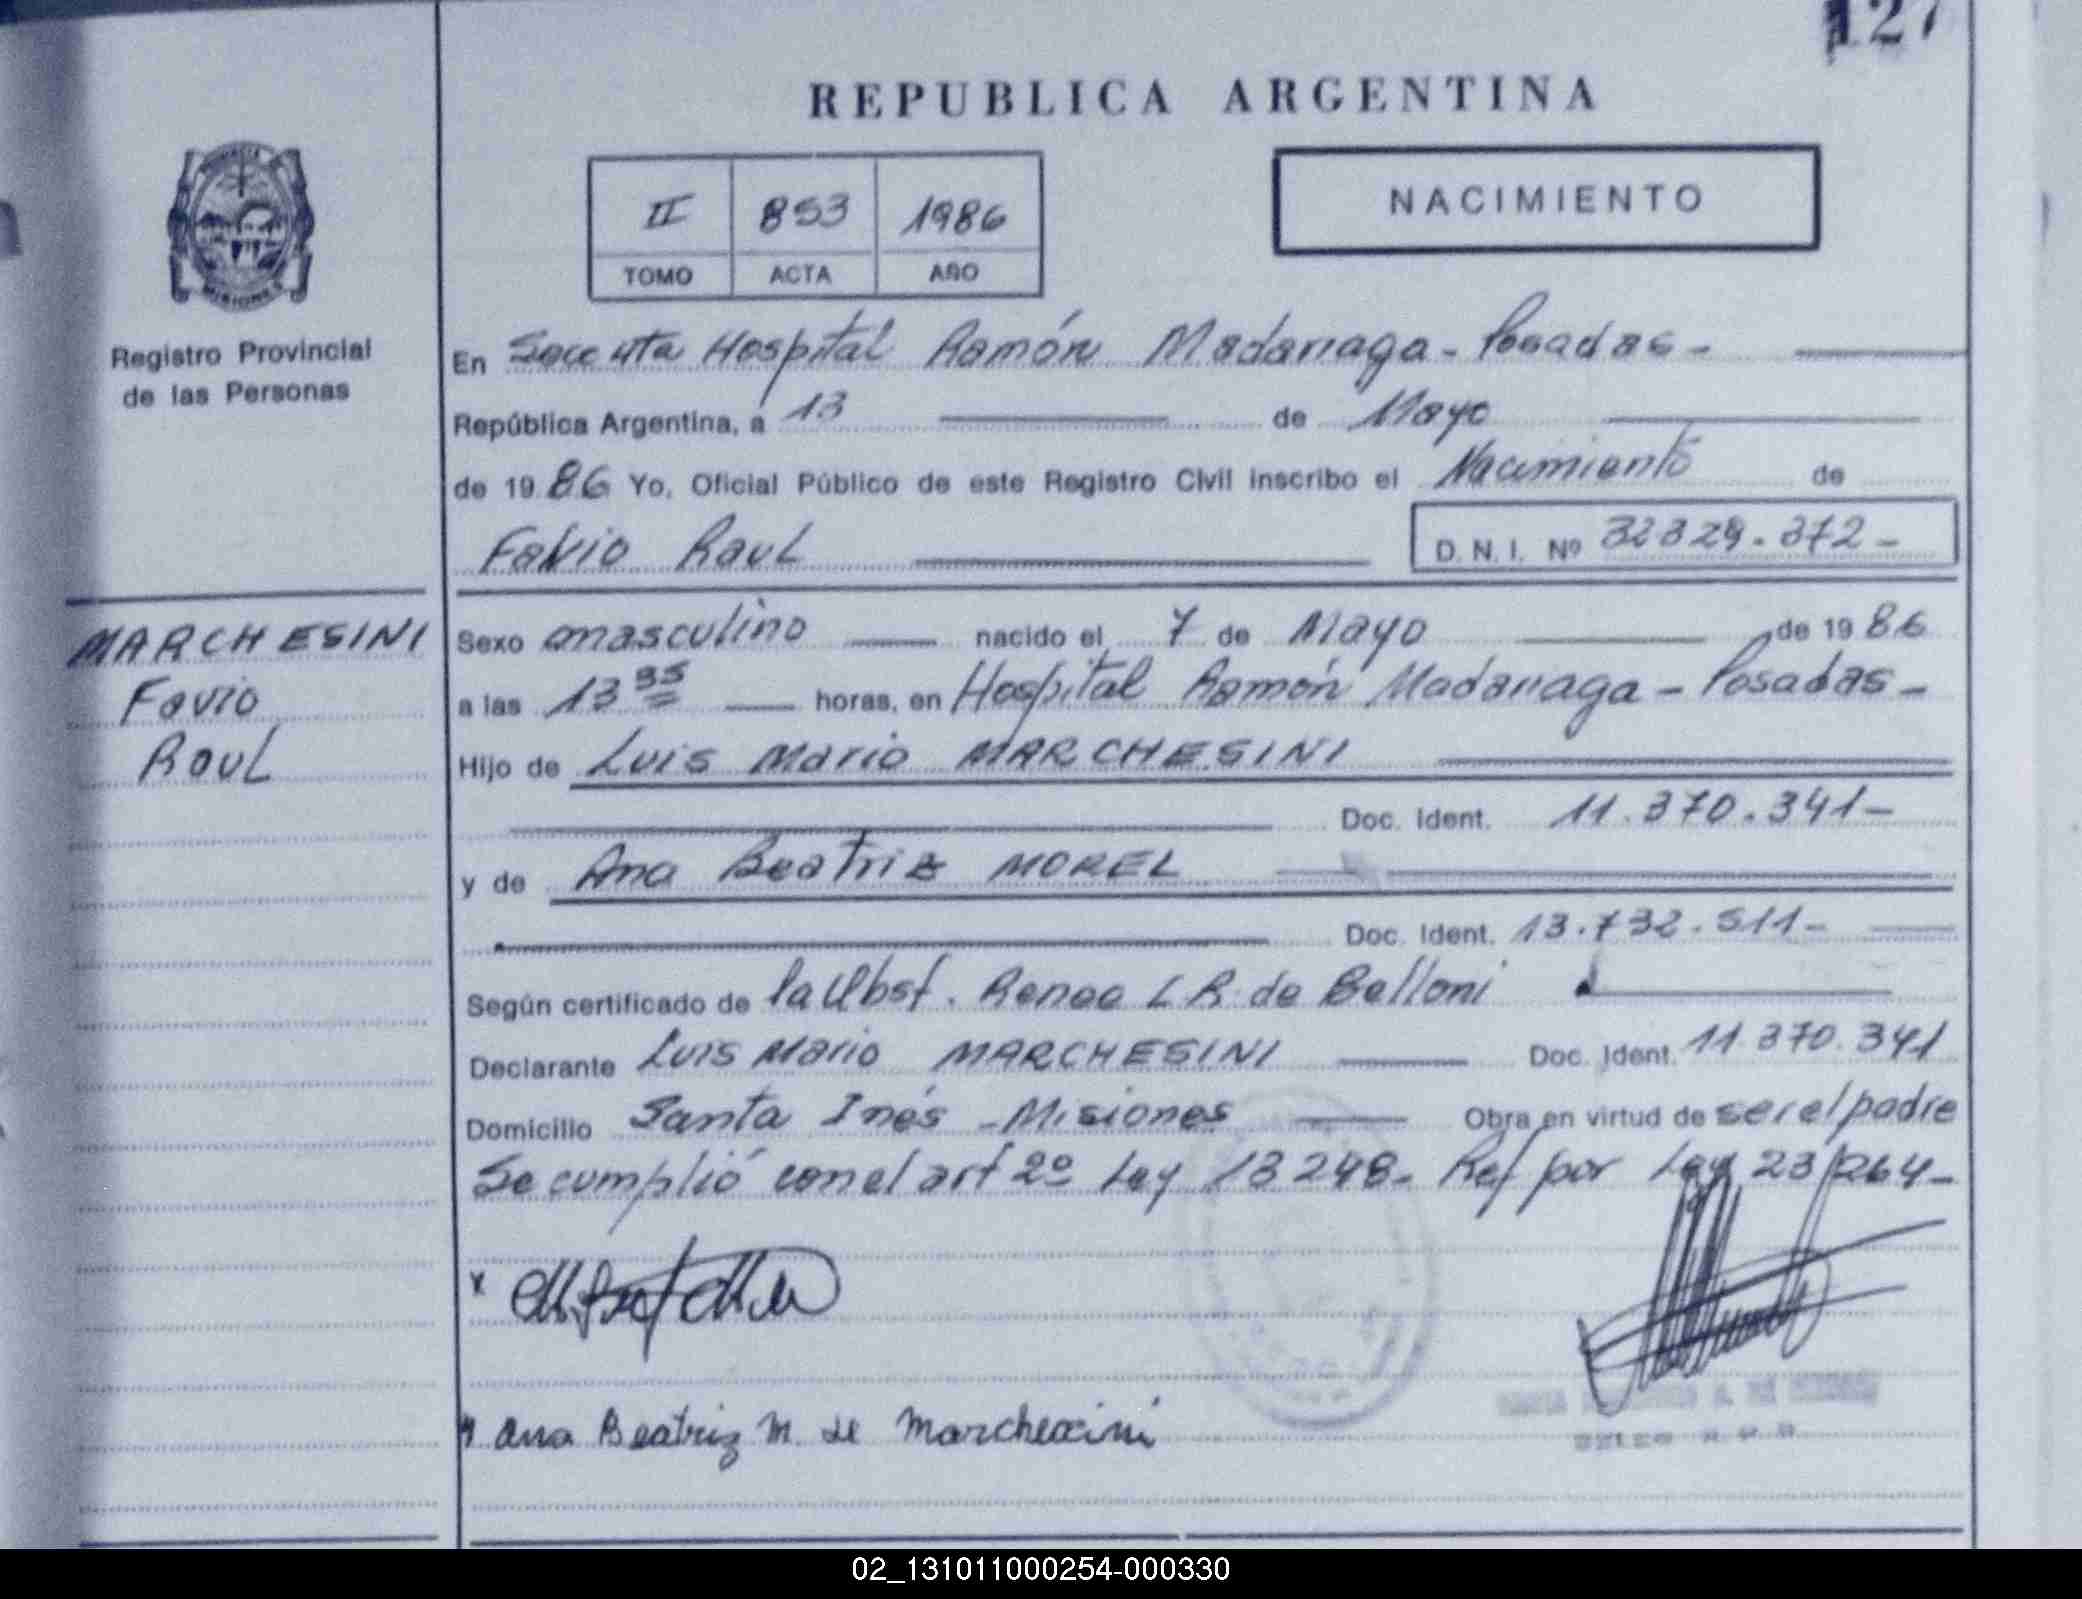 127
REPUBLICA ARGENTINA
II 853 1986
TOMO ACTA AÑO
NACIMIENTO
PROVINCIA
MISIONES
Registro Provincial
de las Personas
En Secc 4ta Hospital Ramón Madariaga - Posadas -
República Argentina, a 13 de Mayo
de 1986 Yo, Oficial Público de este Registro Civil inscribo el Nacimiento de
Favio Raul D. N. I. Nº 32329.372-
MARCHESINI
Favio
Raul
Sexo masculino nacido el 7 de Mayo de 1986
a las 13 35 horas, en Hospital Ramón Madariaga - Posadas -
Hijo de Luis Mario MARCHESINI
Doc. Ident. 11.370.341-
y de Ana Beatriz MOREL
Doc. Ident. 13.732.511-
Según certificado de la Obst. Renee L R de Belloni
Declarante Luis Mario MARCHESINI Doc. Ident. 11 370.341
Domicilio Santa Inés - Misiones Obra en virtud de ser el padre
Se cumplió con el art 2º Ley 13248- Ref por Ley 23/264-
x
Ana Beatriz M. de Marchesini
02_131011000254-000330